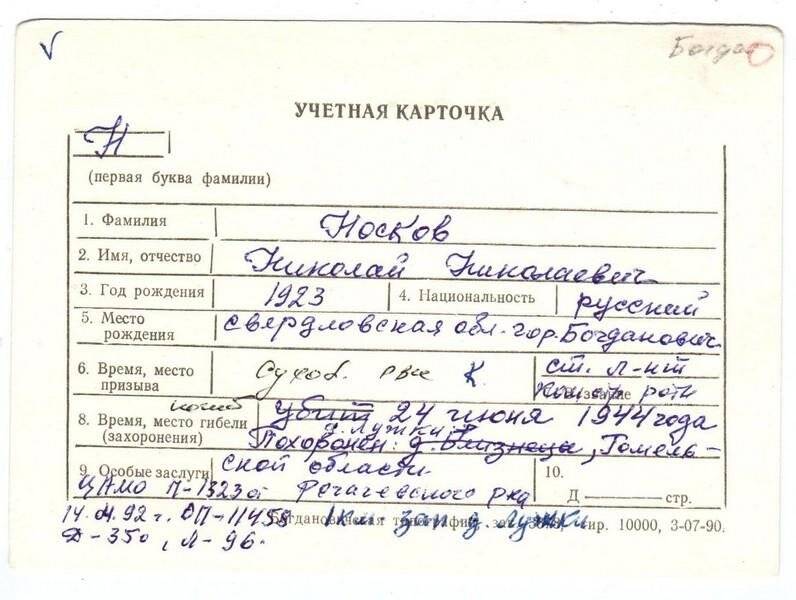 Богдан
УЧЕТНАЯ КАРТОЧКА
Н
(первая буква фамилии)
1. Фамилия Носков
2. Имя, отчество Николай Николаевич
3. Год рождения 1923 4. Национальность русский
5. Место рождения свердловская обл. гор. Богданович
6. Время, место призыва Сухол. рвк К. ст. л-нт
роты
8. Время, место гибели (захоронения) убит 24 июня 1944 года
д. Лужки
Похоронен: д. Близнецы, Гомель-
9. Особые заслуги ской области 10.
ЦАМО П-1323 от Рогачевского р-на Д стр.
14.04.92 г. ОП-11458 1 км. зап д. Лужки
Богдановичская типография. зак. тир. 10000, 3-07-90.
Д-350, Л-96.